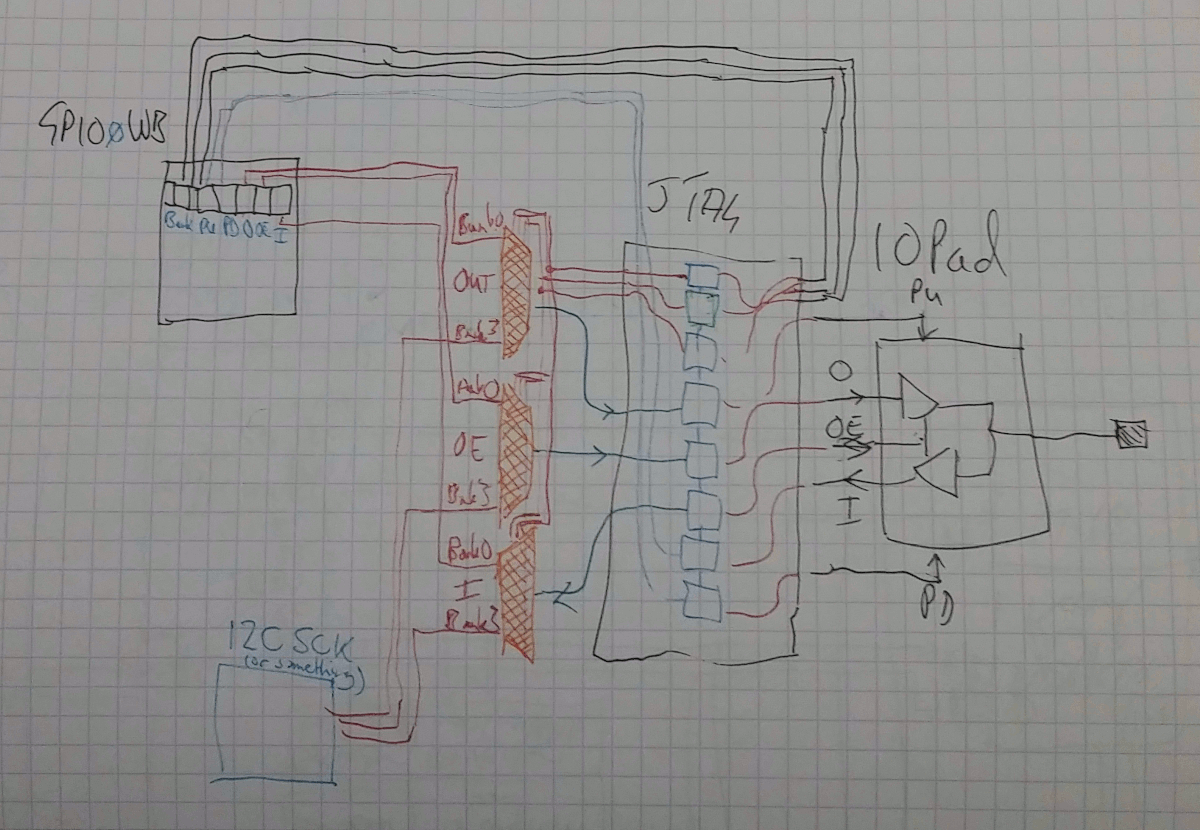 GPIO0WB
Bank Pu PD O OE I
JTAG
IO Pad
PU
Bank0
OUT
Bank3
Bank0
OE
Bank3
Bank0
I
Bank3
O
OE
I
PD
I2C SCK
(or something)